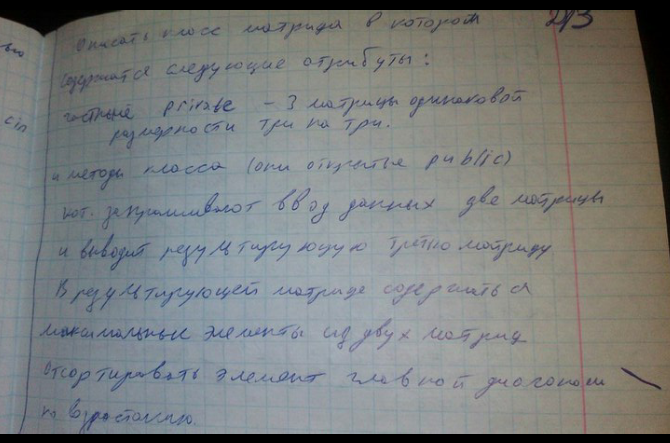 243
Описать класс матрица в котором
содержатся следующие атрибуты:
частные private - 3 матрицы одинаковой
размерности три на три.
и методы класса (они открытые public)
кот. запрашивают ввод данных две матрицы
и выводит результирующую третью матрицу
В результирующей матрице содержаться
максимальные элементы из двух матриц
Отсортировать элемент главной диагонали
по возростанию.